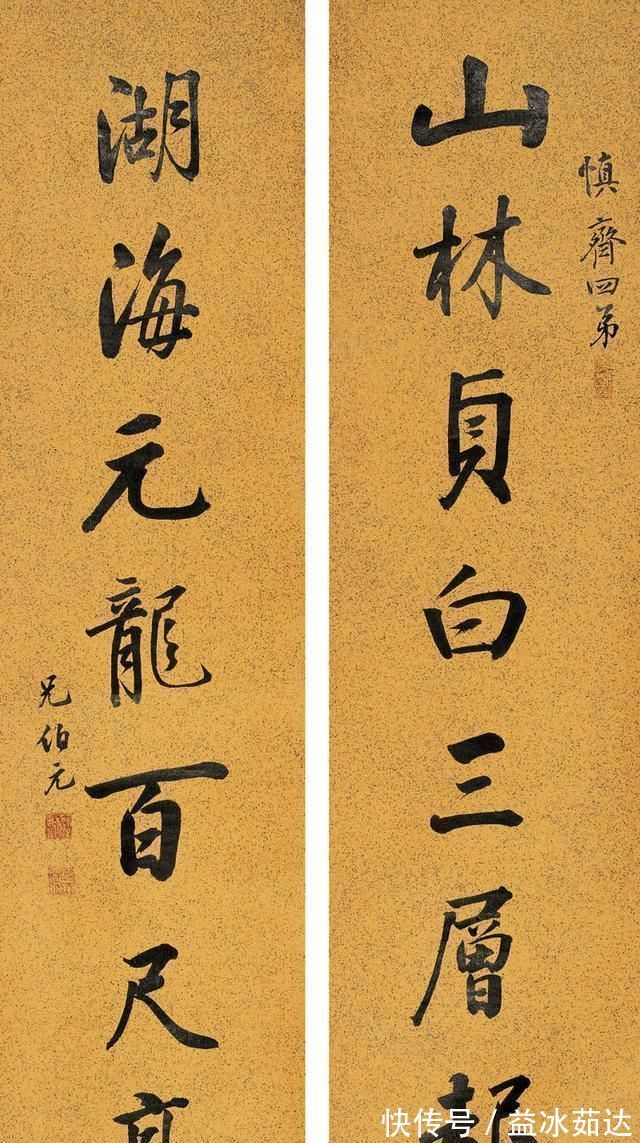 慎齋四弟
山林貞白三層
湖海元龍百尺
兄伯元
快传号 / 益冰茹达